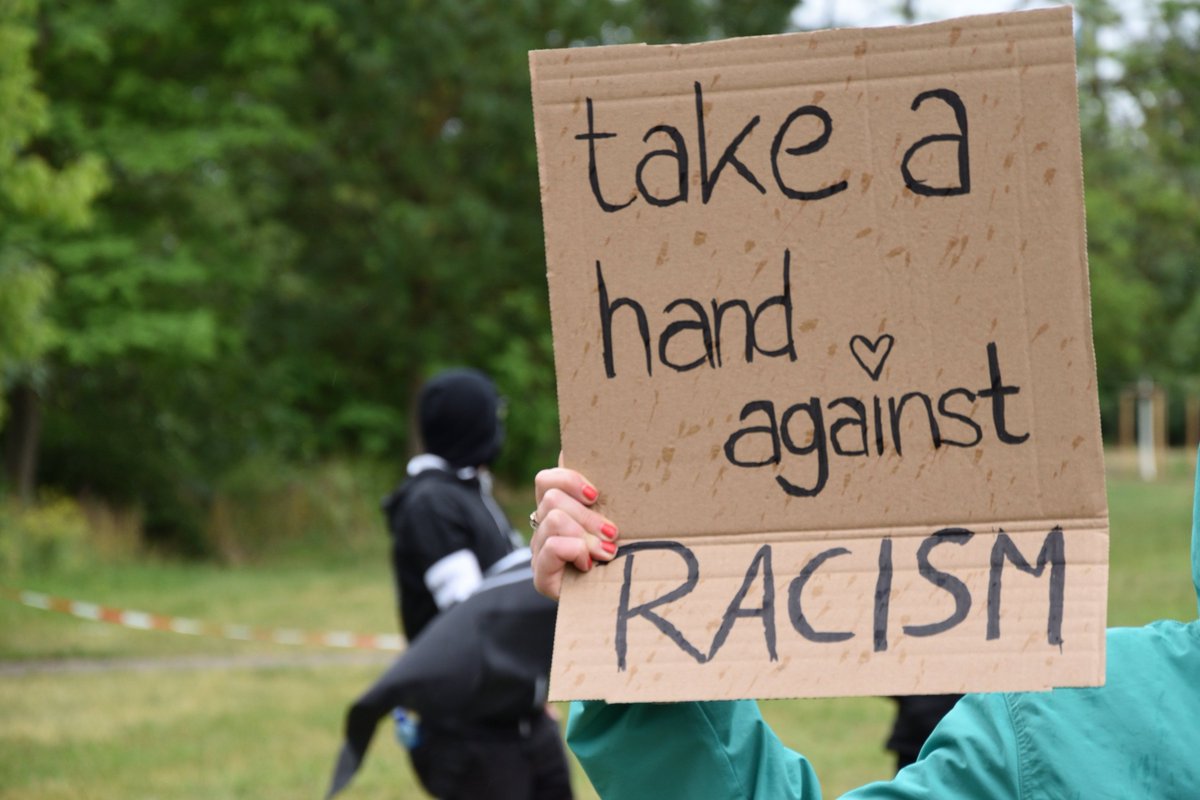 take a
hand
against
RACISM